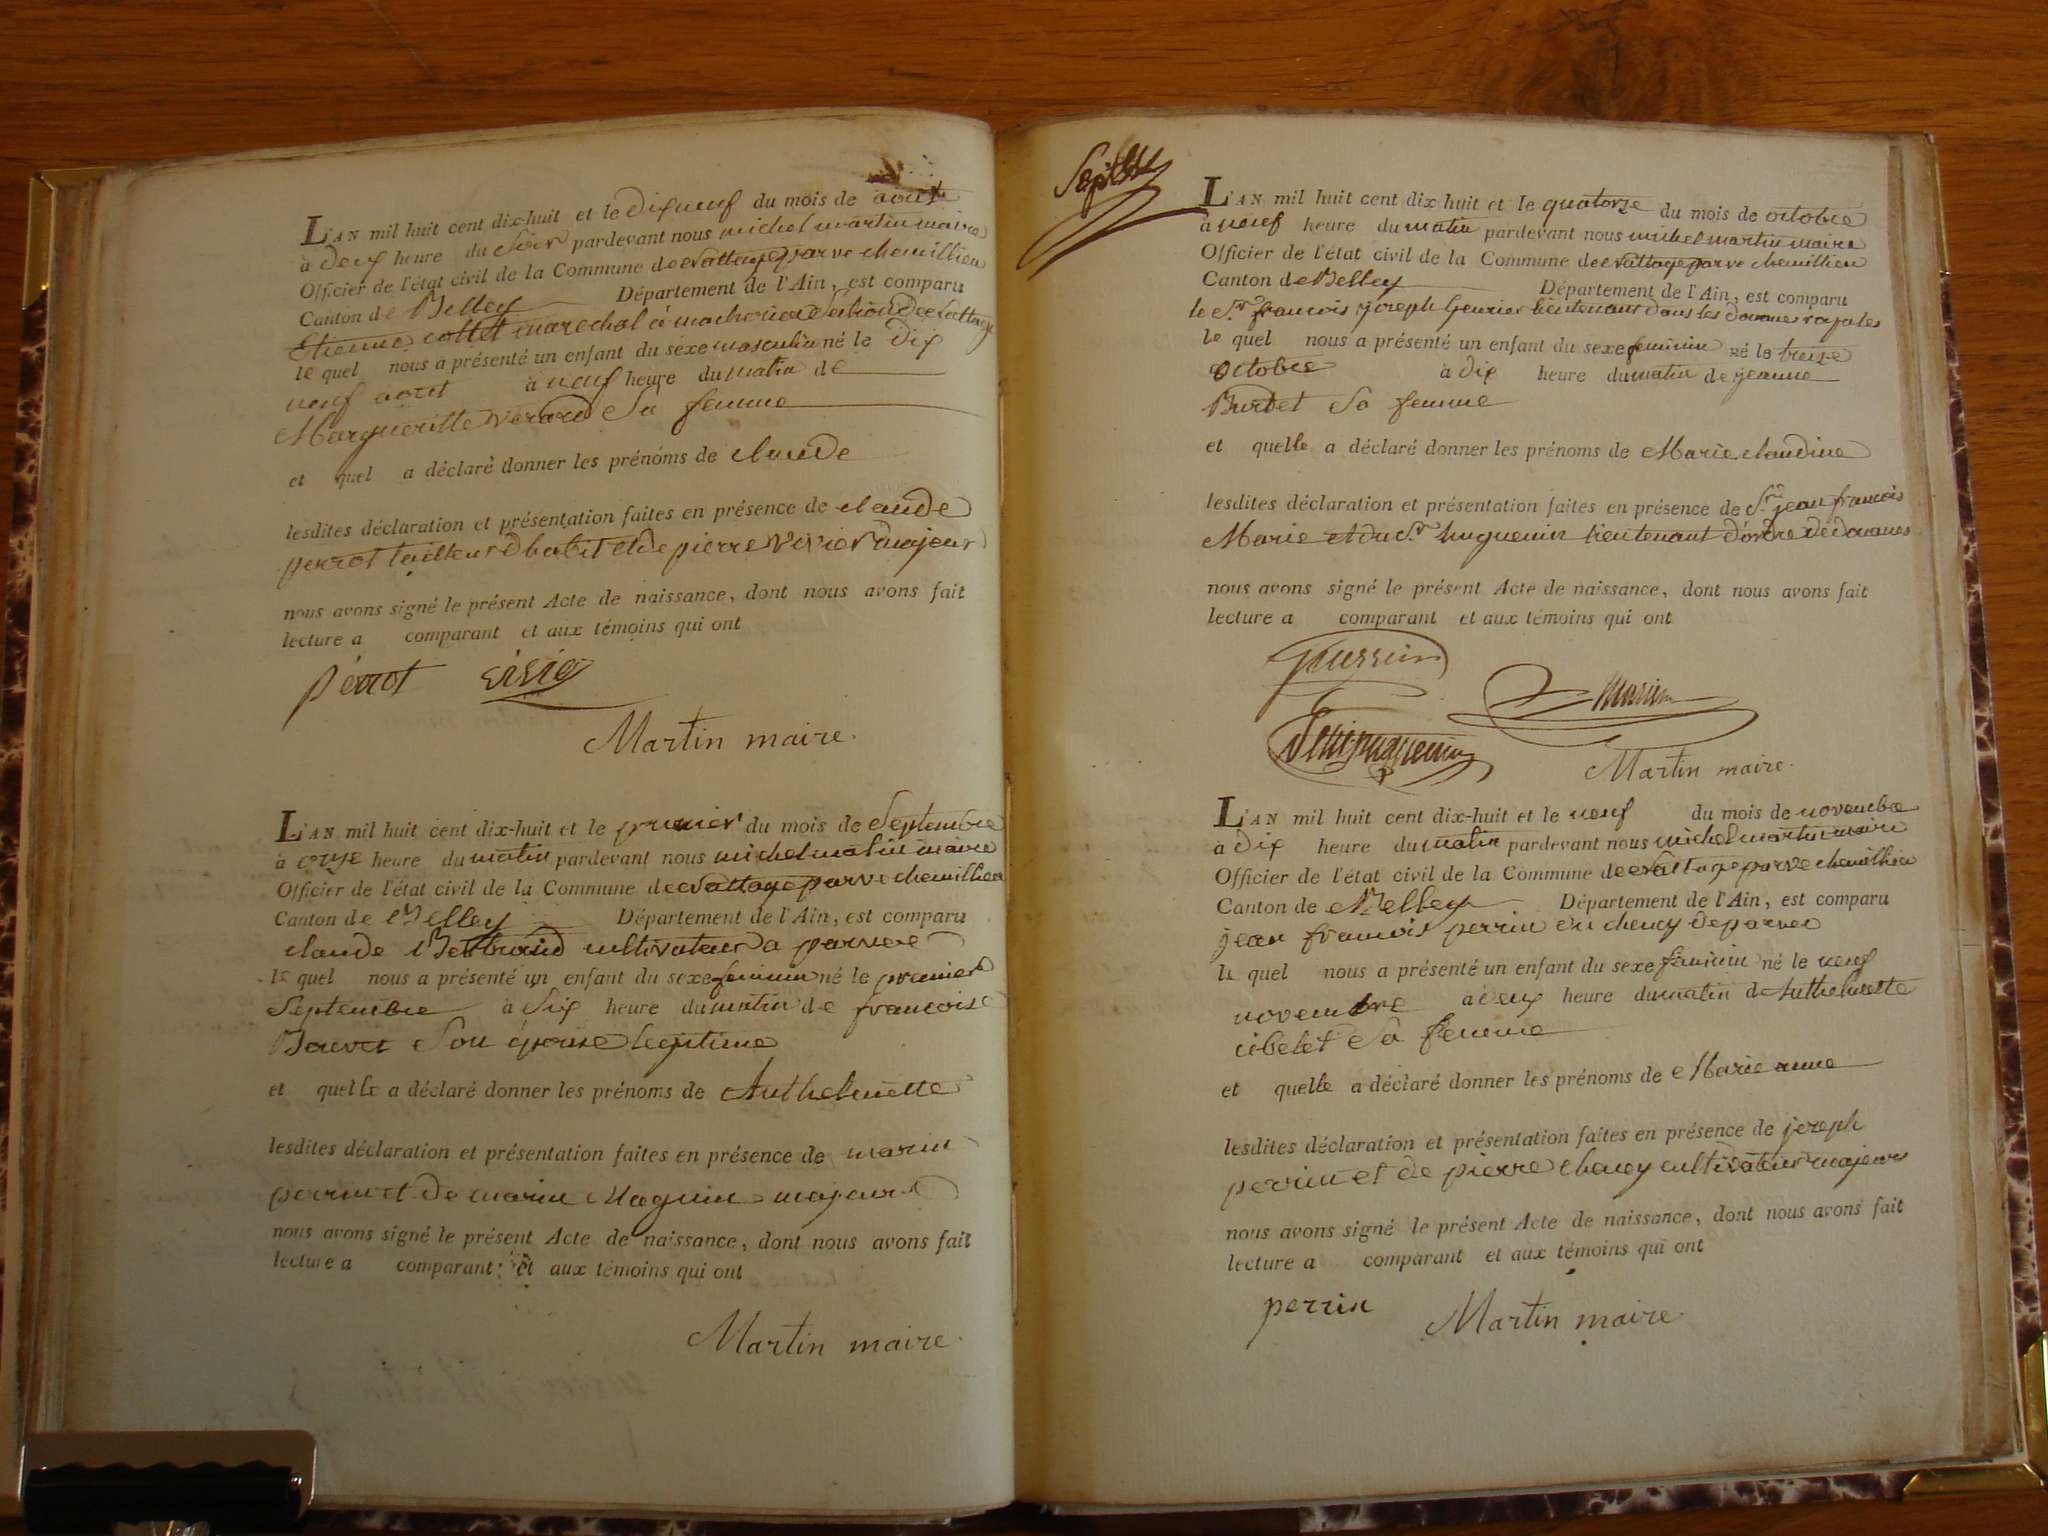 L'AN mil huit cent dix-huit et le dixneuf du mois de aout
à deux heure du soir pardevant nous michel martin maire
Officier de l'état civil de la Commune de nattage parve chemillieu
Canton de Belley Département de l'Ain, est comparu
Etienne collet marechal à de nattage
le quel nous a présenté un enfant du sexe masculin né le dix
neuf aout à neuf heure du matin de
Margueritte verard sa femme
et quel a déclaré donner les prénoms de claude
lesdites déclaration et présentation faites en présence de claude
perrot tailleur d'habit et de pierre vivier majeur
nous avons signé le présent Acte de naissance, dont nous avons fait
lecture a comparant et aux témoins qui ont
perrot
Martin maire.
L'AN mil huit cent dix-huit et le premier du mois de Septembre
à onze heure du matin pardevant nous michel matin maire
Officier de l'état civil de la Commune de nattage parve chemillieu
Canton de Belley Département de l'Ain, est comparu
claude Bertrand cultivateur a parve
le quel nous a présenté un enfant du sexe feminin né le premier
Septembre à Six heure du matin de francoise
Bouvet Son épouse legitime
et quelle a déclaré donner les prénoms de Anthelmette
lesdites déclaration et présentation faites en présence de marin
perrin et de marin Maguin majeurs
nous avons signé le présent Acte de naissance, dont nous avons fait
lecture a comparant et aux témoins qui ont
Martin maire.
Sept
L'AN mil huit cent dix-huit et le quatorze du mois de octobre
à neuf heure du matin pardevant nous michel martin maire
Officier de l'état civil de la Commune de nattage parve chemillieu
Canton de Belley Département de l'Ain, est comparu
le Sr. francois joseph lieutenant dans les douanes royales
le quel nous a présenté un enfant du sexe feminin né le treize
octobre à dix heure du matin de jeanne
Burdet sa femme
et quelle a déclaré donner les prénoms de Marie claudine
lesdites déclaration et présentation faites en présence de Sr. jean francois
Marie et du Sr huguenin lieutenant d'ordre dédouanes
nous avons signé le présent Acte de naissance, dont nous avons fait
lecture a comparant et aux témoins qui ont
Martin maire.
L'AN mil huit cent dix-huit et le neuf du mois de novembre
à dix heure du matin pardevant nous michel martin maire
Officier de l'état civil de la Commune de nattage parve chemillieu
Canton de Belley Département de l'Ain, est comparu
jean francois perrin du cheney de parve
le quel nous a présenté un enfant du sexe féminin né le neuf
novembre à deux heure du matin de Anthelmette
cibelet sa femme
et quelle a déclaré donner les prénoms de Marie anne
lesdites déclaration et présentation faites en présence de joseph
perrin et de pierre cheney cultivateur majeurs
nous avons signé le présent Acte de naissance, dont nous avons fait
lecture a comparant et aux témoins qui ont
perrin Martin maire